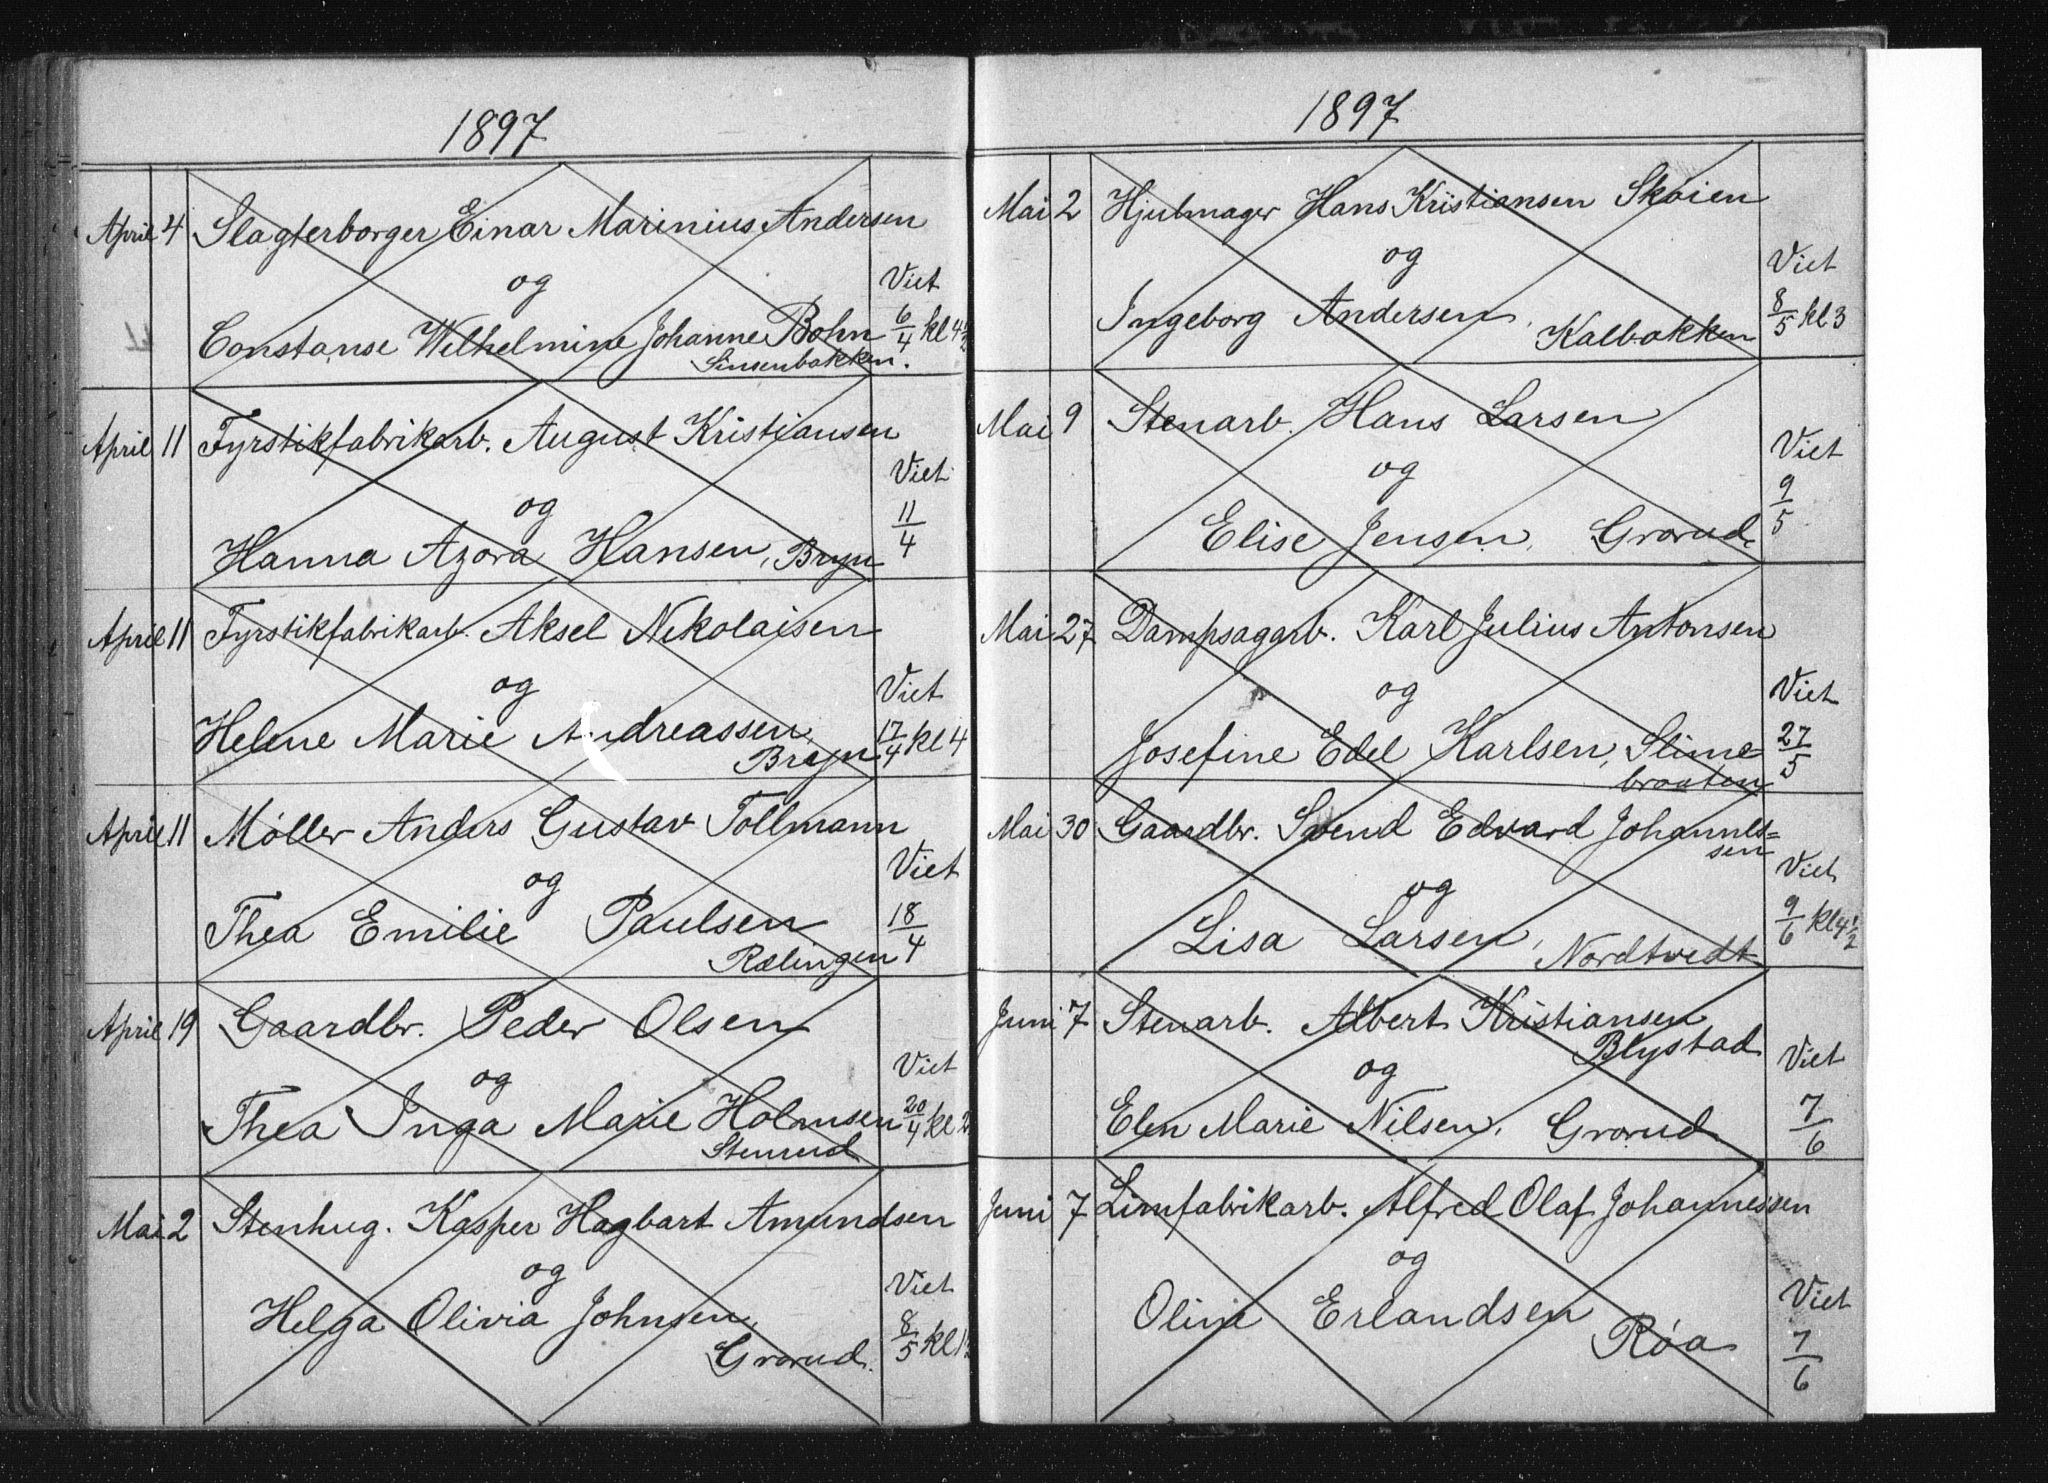 1897
April 4 Slagterborger Einar Marinius Andersen
og
Viet
Constanse Wilhelmine Johanne Bohn 6/4 kl 4 1/2
Sinsenbakken.
April 11 Fyrstikfabrikarb. August Kristiansen
Viet
og 11/4
Hanna Azora Hansen, Bryn
April 11 Fyrstikfabrikarb. Aksel Nikolaisen
og Viet
Helene Marie Andreassen, 17/4 kl 4
Bryn
April 11 Møller Anders Gustav Tollmann
og Viet
Thea Emilie Paulsen 18/4
Rælingen
April 19 Gaardbr. Peder Olsen
og Viet
Thea Inga Marie Holmsen 20/4 kl 2
Stenrud
Mai 2 Stenhug. Kasper Hagbart Amundsen
og Viet
Helga Olivia Johnsen, 8/5 kl 1 1/2
Grorud.
1897
Mai 2 Hjulmager Hans Kristiansen Skøien
og Viet
Ingeborg Andersen, 8/5 kl 3
Kalbakken
Mai 9 Stenarb. Hans Larsen
og Viet
9/5
Elise Jensen, Grorud.
Mai 27 Dampsagarb. Karl Julius Antonsen
og Viet
Josefine Edel Karlsen, Slime= 27/5
braaten
Mai 30 Gaardbr. Svend Edvard Johannes=
sen
og Viet
Lisa Larsen, 9/6 kl 4 1/2
Nordtvedt
Juni 7 Stenarb. Albert Kristiansen
Blystad
og Viet
Elen Marie Nilsen, Grorud 7/6
Juni 7 Limfabrikarb. Alfred Olaf Johannessen
og
Olivia Erlandsen Viet
Røa 7/6